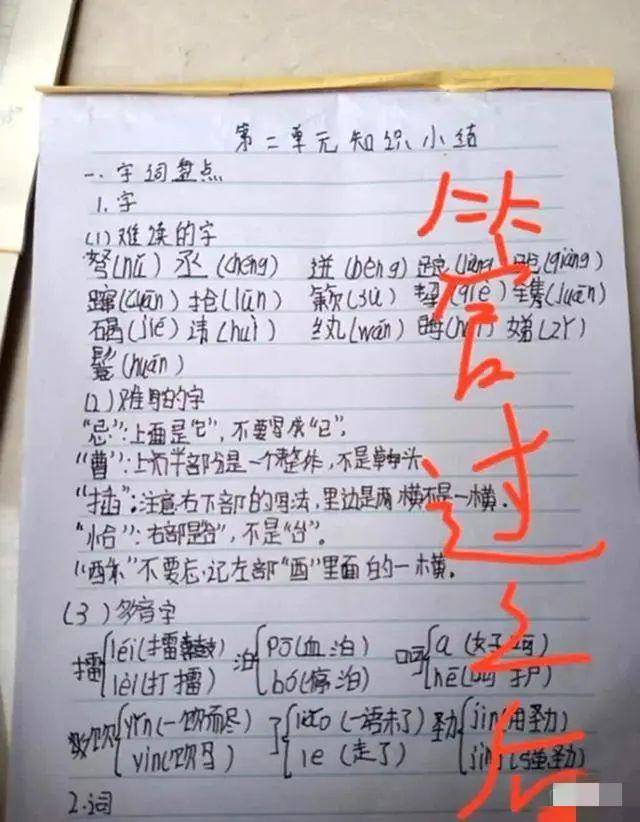 第二单元知识小结
一、字词盘点
1.字
(1)难读的字
弩(nǔ) 丞(chéng) 迸(bèng) 踉(liàng) 跄(qiàng)
蹿(cuān) 抡(lūn) 簌(sù) 挈(qiè) 镌(juān)
碣(jié) 讳(huì) 纨(wán) 晦(huì) 姊(zǐ)
鬟(huán)
(2)难写的字
"忌":上面是"己",不要写成"已"。
"曹":上面半部分是一个整体,不是草字头
"插":注意右下部的写法,里边是两横不是一横。
"恰":右部是"合",不是"台"。
不要忘记左部"酉"里面的一横。
(3)多音字
擂 léi(擂鼓) 泊 pō(血泊) 呵 a
lèi(打擂) bó(停泊) hē(呵护)
饮 yǐn(一饮而尽) 了 liǎo(一语未了) 劲 jìn(用劲)
yìn(饮马) le(走了) jìng(强劲)
2.词
答过之后